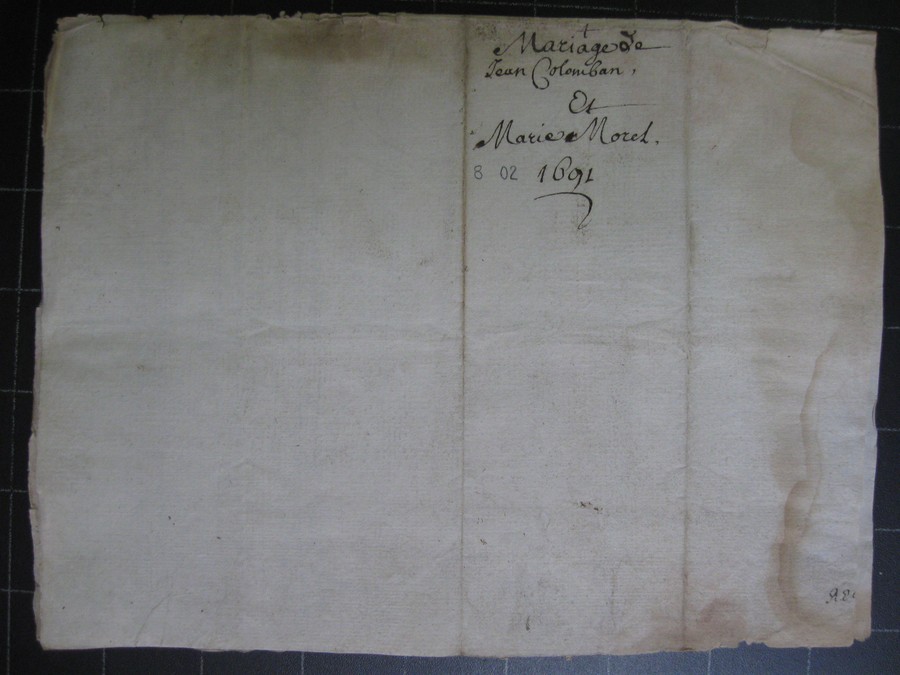 Mariage de
Jean Colomban,
Et
Marie Morel.
B 02 1691